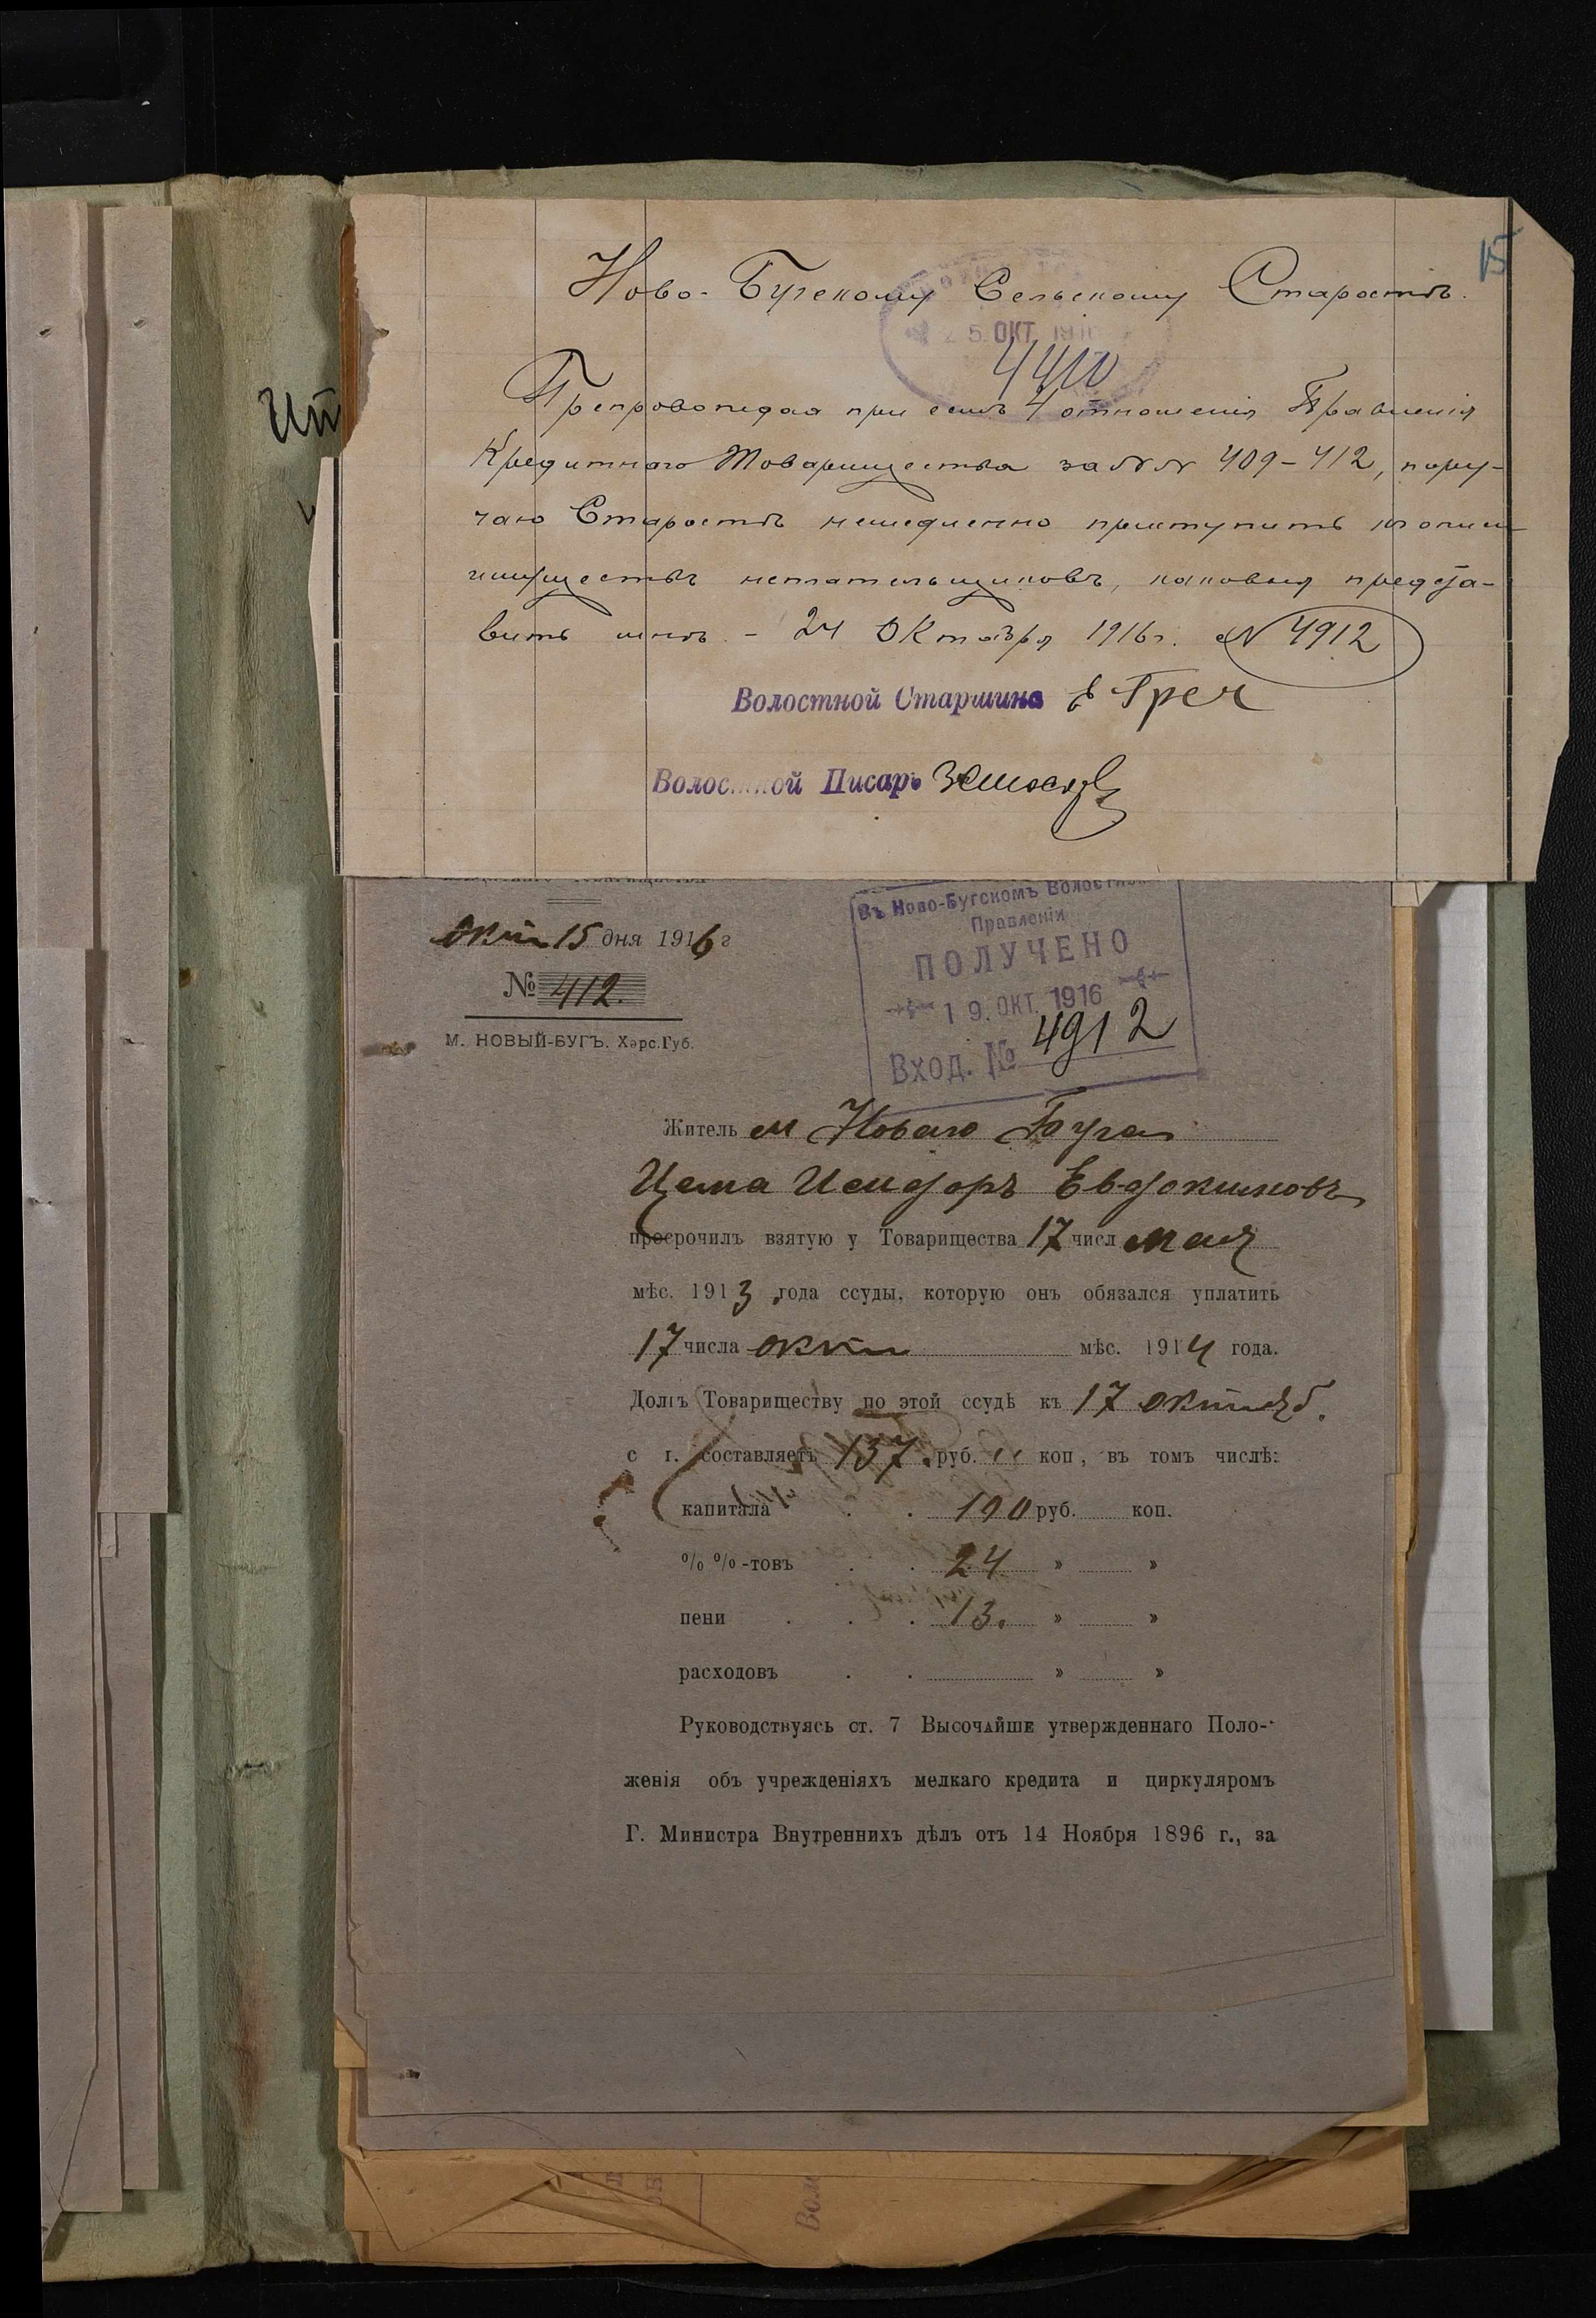 15
Ново-Бугскому Сельскому Старостѣ.
25 ОКТ. 191
4410
Препровождая при семъ 4 отношенія Правленія
Кредитнаго Товарищества за №№ 409-412, пору-
чаю Старостѣ немедленно приступить къ описи
имуществъ неплательщиковъ, каковыя предста-
вить мнѣ. - 24 Октября 1916 г. № 4912
Волостной Старшина Греч
Волостной Писарь
Окт 15 дня 1916 г
№ 412.
М. НОВЫЙ-БУГЪ. Херс.Губ.
Въ Ново-Бугскомъ Волостном
Правленіи
ПОЛУЧЕНО
19. ОКТ. 1916
Вход. № 4912
Житель м Новаго Буга
Цема Исидоръ Евдокимовъ
просрочилъ взятую у Товарищества 17 числ мая
мѣс. 1913 года ссуды, которую онъ обязался уплатить
17 числа окт мѣс. 1914 года.
Долгъ Товариществу по этой ссудѣ къ 17 октяб.
с г. составляетъ 137. руб. " коп, въ томъ числѣ:
капитала . . 100 руб. коп.
% %-товъ . . 24 » »
пени . . . 13. » »
расходовъ . . » »
Руководствуясь ст. 7 Высочайше утвержденнаго Поло-
женія объ учрежденіяхъ мелкаго кредита и циркуляромъ
Г. Министра Внутреннихъ дѣлъ отъ 14 Ноября 1896 г., за